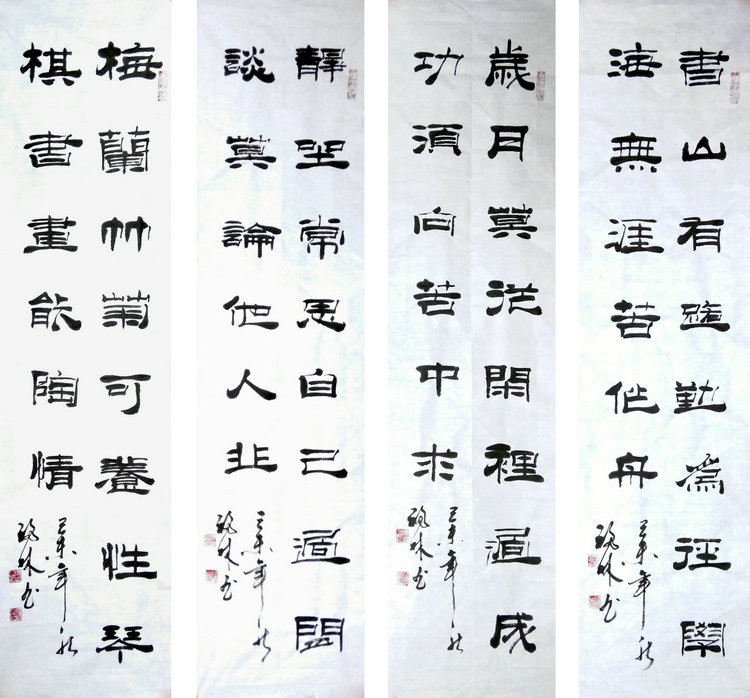 書山有勤為徑學
海無涯苦作舟
乙未年秋
林書
歲月莫從閑裡過成
功須向苦中求
乙未年秋
林書
靜坐常思自己過閒
談莫論他人非
乙未年秋
林書
梅蘭竹菊可養性琴
棋書畫能陶情
乙未年秋
林書